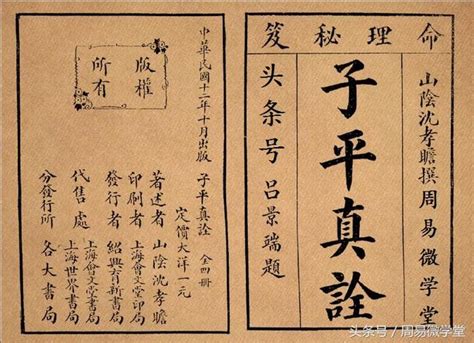 命理秘笈
山陰沈孝瞻撰周易微学堂
子平真詮
头条号吕景端题
版權
所有
中華民國十二年十月出版
子平真詮 全四冊
定價大洋一元
著述者 山陰沈孝瞻
印刷者 上海會文堂印局
發行者 紹興育新書局
代售處 上海會文堂書局
上海世界書局
分發行所 各大書局
头条号／周易微学堂